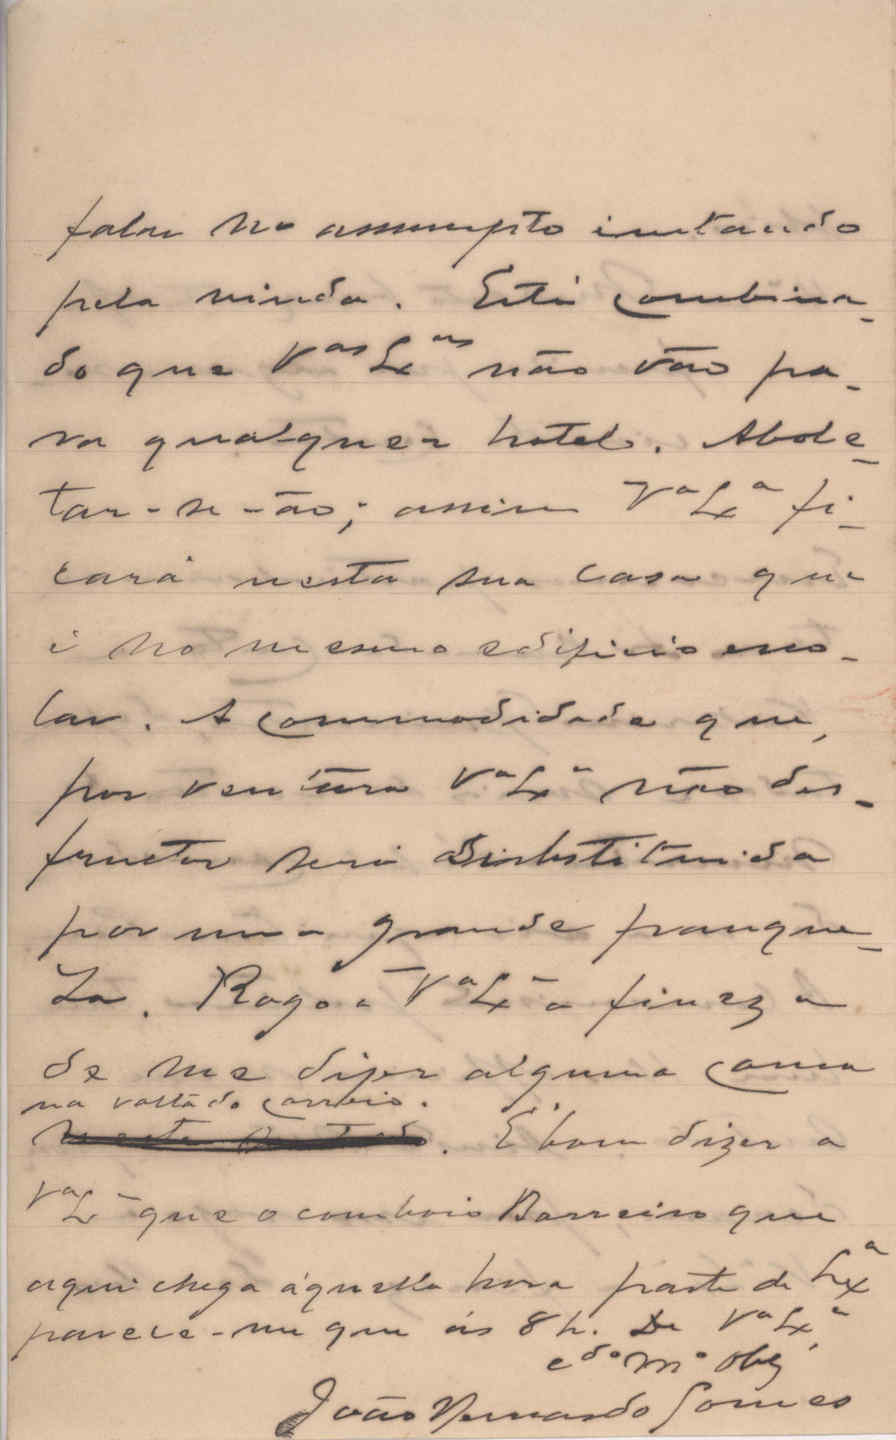 falou no assumpto instando
pela vinda. Está combina-
do que Vas Exas não vão pa-
ra qualquer hotel. Abole-
tar-se-ão; assim Va Exa fi-
cará nesta sua casa que
é no mesmo edificio esco-
lar. A commodidade que,
por ventura Va Exa não des-
fructar será substituida
por uma grande franque-
za. Rogo a Va Exa a fineza
de me dizer alguma cousa
na volta do correio.
. É bom dizer a
Va Exa que o comboio Barreiro que
aqui chega áquella hora parte de Lxa
parece-me que ás 8 h. De Va Exa
cdo mo obg
João Gomes